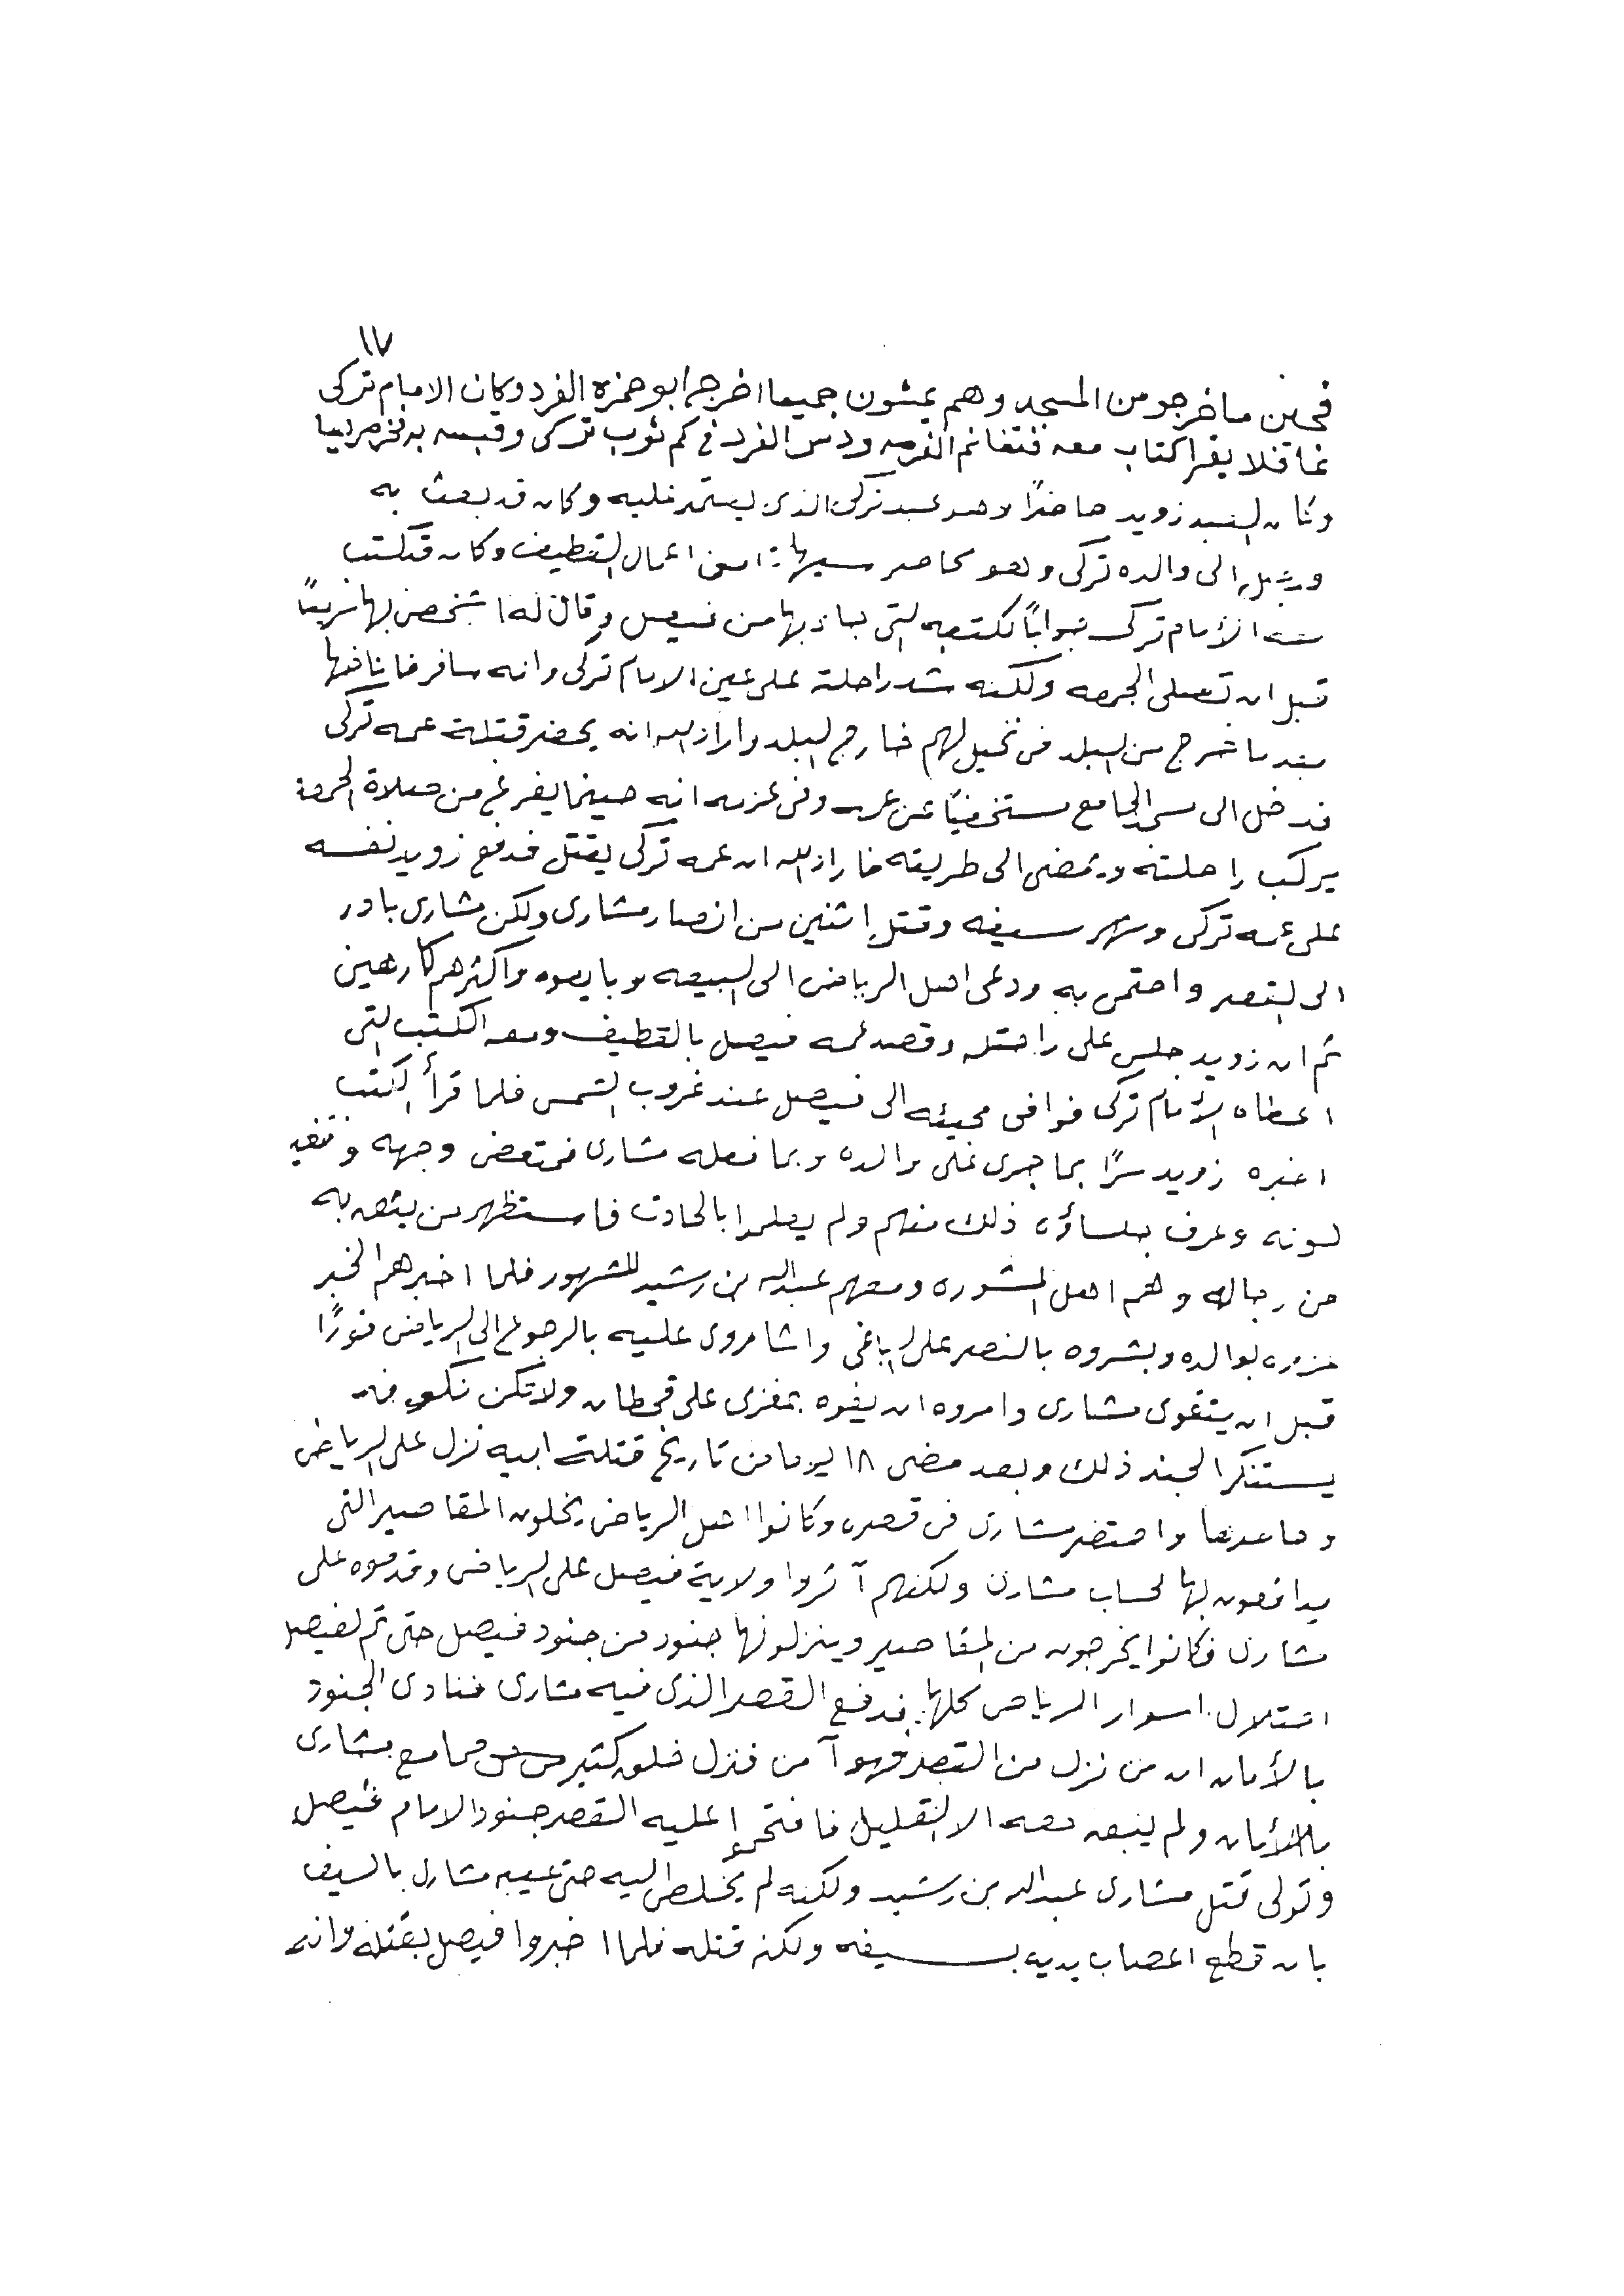 ١٧
فحين ما خرجو من المسجد وهم يمشون جميعا اخرج ابو حمزه الفرد وكان الامام تركي
غافلا يقرا كتاب معه فتغانم الفرصه ودس الفرد في كم ثوب تركي وقبسه به فخر ميتا
وكان العبد زويد حاضرًا وهو عبد تركي الذي يعتمد عليه وكان قد بعث به
فيصل الى والده تركي وهو محاصر سيهات من اعمال القطيف وكان قد كتب
معه الأمام تركي جوابًا لكتبه التي جاء بها من فيصل وقال له اشخص بها سريعًا
قبل ان تصلى الجمعه ولكنه شد راحلته على عين الامام تركي وانه سافر فاناخها
بعد ما خرج من البلد في نخيل لهم خارج البلد واراد الله انه يحضر قتلة عمه تركي
فدخل الى مسجد الجامع مستخفيًا عن عمه وفي عزمه انه حينما يفرغ من صلاة الجمعة
يركب راحلته ويمضي الى طريقه فاراد الله ان عمه تركي يقتل فدفع زويد نفسه
على عمه تركي وشهر سيفه وقتل اثنين من انصار مشاري ولكن مشاري بادر
الى القصر واحتمى به ودعى اهل الرياض الى البيعه وبايعوه واكثرهم كارهين
ثم ان زويد جلس على راحتله وقصد عمه فيصل بالقطيف ومعه الكتب التي
اعطاه الأمام تركي فوافى مجيئه الى فيصل عند غروب الشمس فلما قرأ الكتب
اخبره زويد سرًا بما جرى على والده وبما فعله مشاري فمتعض وجهه وتغير
لونه وعرف جلساؤه ذلك منهم ولم يعلموا بالحادث فاستظهر من يثق به
من رجاله وهم اهل المشوره ومعهم عبدالله بن رشيد المشهور فلما اخبرهم الخبر
عزوه بوالده وبشروه بالنصر على الباغي واشاروى عليه بالرجوع الى الرياض فورًا
قبل ان يتقوى مشاري وامروه ان يفوه بمغزى على قحطان ولاتكن نكو فه
يستنكر الجند ذلك وبعد مضي ١٨ يوما من تاريخ قتلة ابيه نزل على الرياض
وحاصرها واحتضر مشاري في قصره وكانوا اهل الرياض يخلون المقاصير التي
يدافعون بها لحساب مشاري ولكنهم آثروا ولاية فيصل على الرياض وقدموه على
مشاري فكانوا يخرجون من المقاصير وينزلونها جنود من جنود فيصل حتى تم لفيصل
احتلال اسوار الرياض كلها فدفع القصر الذي فيه مشاري فنادى الجنود
بالأمان ان من نزل من القصر فهو آمن فنزل خلق كثير من مع مشاري
بالأمان ولم يبقى معه الا القليل فافتحموا عليه القصر جنود الامام فيصل
وتولى قتل مشاري عبدالله بن رشيد ولكنه لم يخلص اليه حتى عيبه مشاري بالسيف
بان قطع اعصاب يديه بسيفه ولكنه قتله فلما اخبروا فيصل بقتله وانه